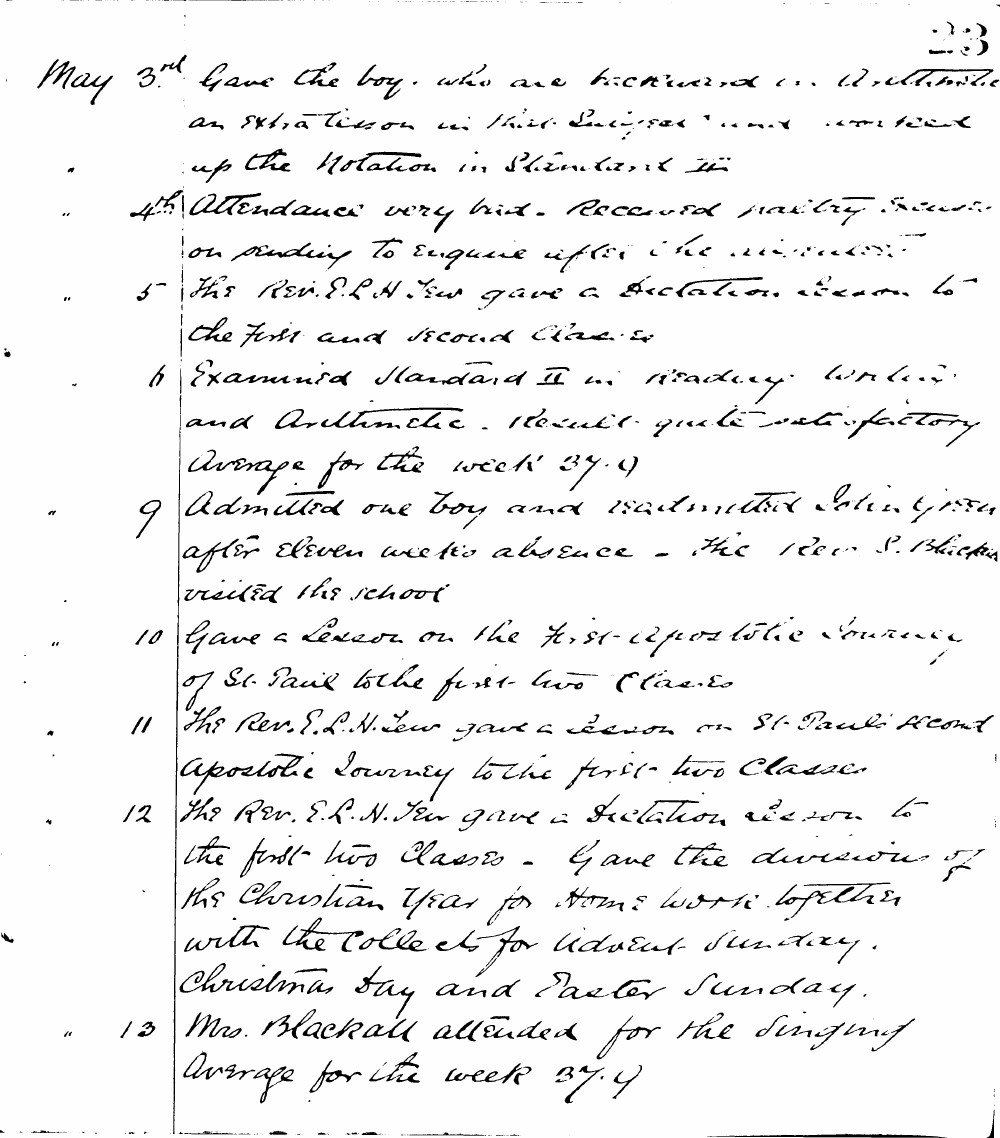 23
May 3rd Gave the boys who are backward in Arithmetic
an extra lesson in that Subject and worked
" up the Notation in Standard III
" 4th Attendance very bad. Received paltry excuses
on sending to enquire after the
" 5 The Rev. E. L. H. Tew gave a Dictation Lesson to
the First and Second Classes
" 6 Examined Standard II in Reading Writing
and Arithmetic. Result quite satisfactory
Average for the week 37.9
" 9 Admitted one boy and readmitted John Green
after eleven weeks absence - The Rev S. Blackall
visited the school
" 10 Gave a Lesson on the First Apostolic Journey
of St. Paul to the first two Classes
" 11 The Rev. E. L. H. Tew gave a Lesson on St. Paul's second
Apostolic Journey to the first two Classes
" 12 The Rev. E. L. H. Tew gave a Dictation Lesson to
the first two Classes - Gave the divisions of
the Christian Year for Home Work together
with the Collects for Advent Sunday.
Christmas Day and Easter Sunday.
" 13 Mrs. Blackall attended for the Singing
Average for the week 37.9